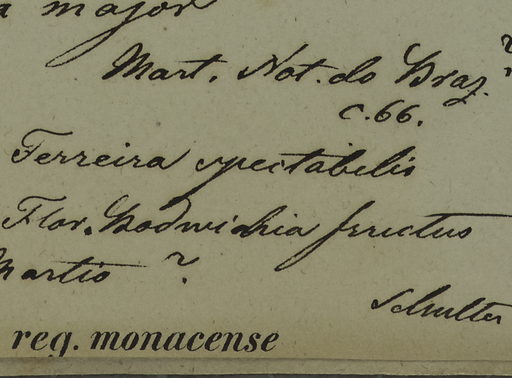 a major
Mart. Not. do Braz. ?
c.66.
Ferreira spectabilis
Flor. Bodwichia fructus
Martio ?
Schulter
reg. monacense